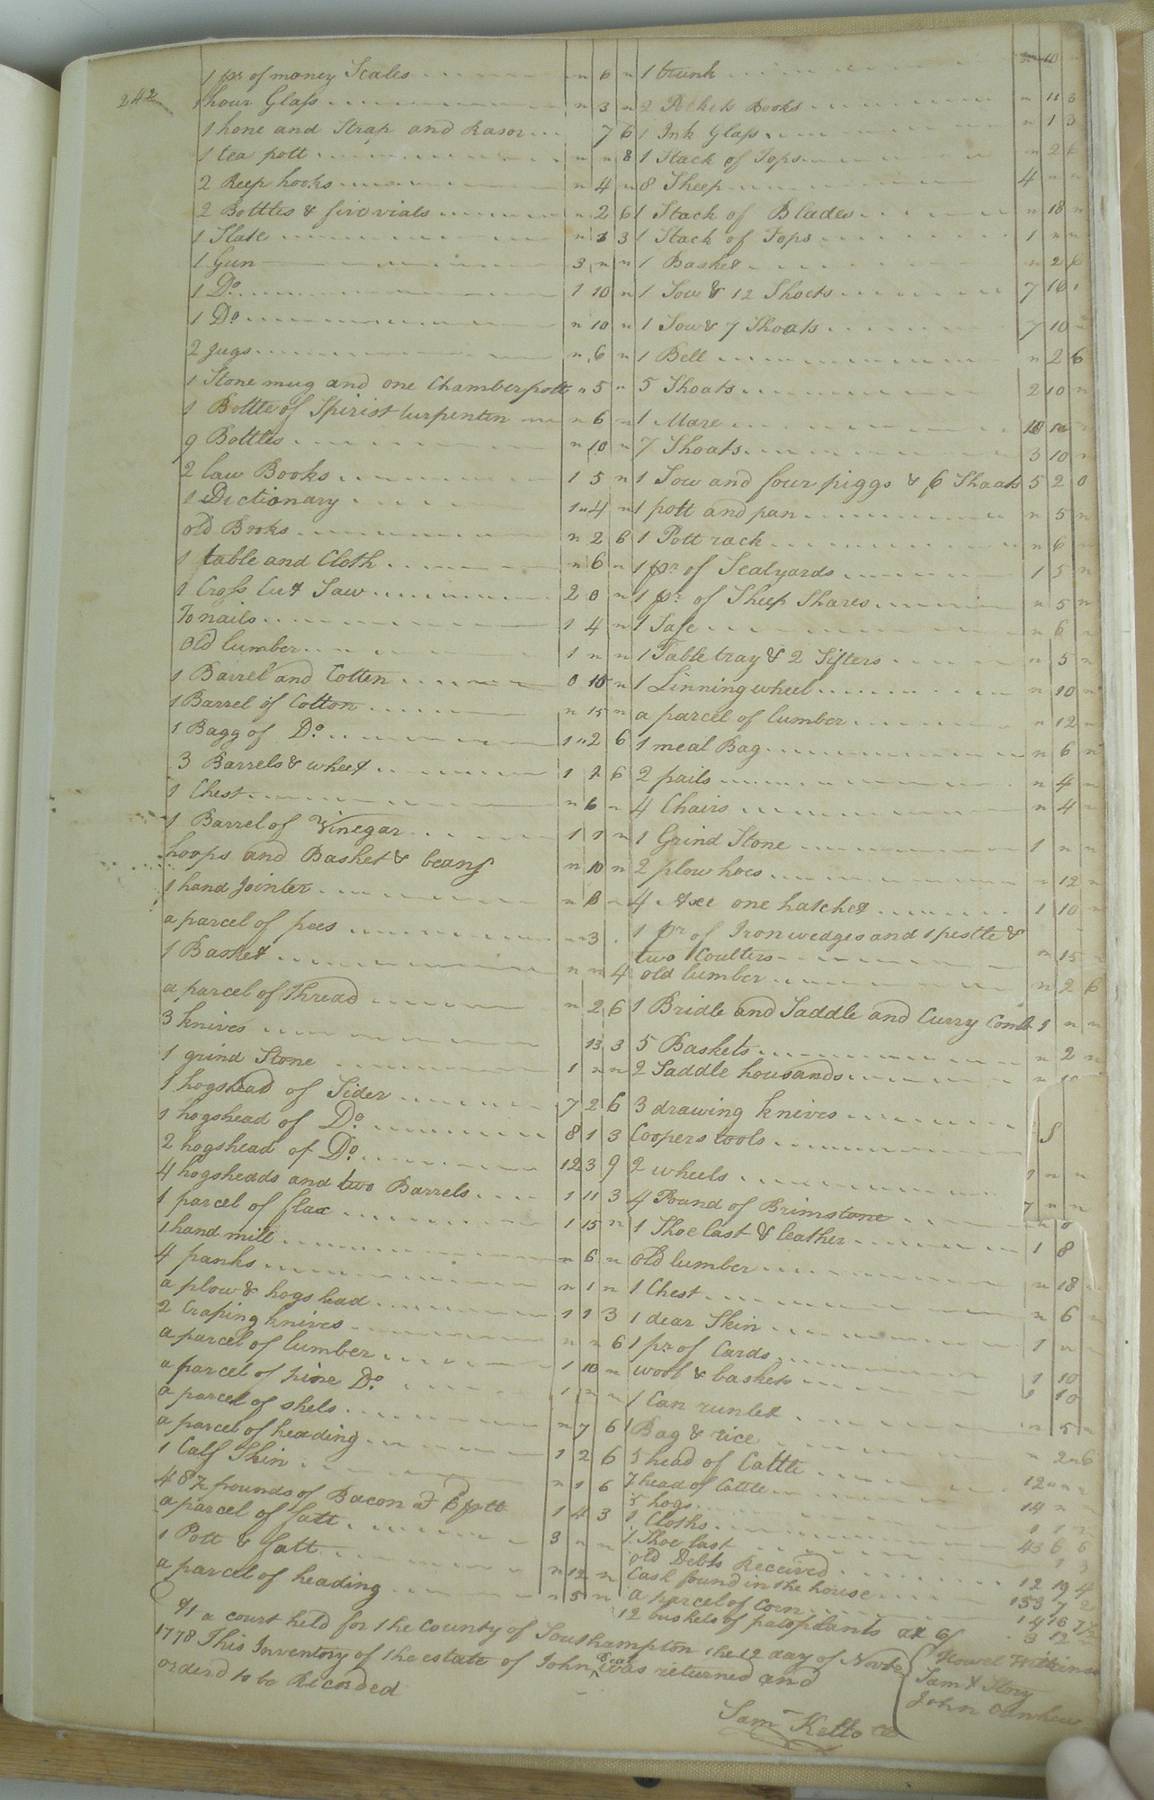 242
1 pr of money Scales n 6 n
1 hour Glass n 3 n
1 hone and Strap and Rasor 7 6
1 tea pott n n 8
2 Reep hooks n 4 n
2 Bottles & five vials n 2 6
1 Slate n 3 3
1 Gun 3 n n
1 Do. 1 10 n
1 Do n 10 n
2 Jugs n 6 n
1 Stone mug and one Chamberpott n 5 n
1 Bottle of Spirist turpenten n 6 n
9 Bottles n 10 n
2 law Books 1 5 n
1 Dictionary 1 4 n
old Books n 2 6
1 table and Cloth n 6 n
1 Cross Cut Saw 2 0 n
To nails 1 4 n
Old lumber 1 n n
1 Barrel and Cotten 0 10 n
1 Barrel of Cotton n 15 n
1 Bagg of Do. 1 2 6
3 Barrels & wheet 1 2 6
1 Chest n 6 n
1 Barrel of Vinegar 1 1 n
hoops and Basket & beans n 10 n
1 hand Jointer n 8 n
a parcel of pees n 3
1 Basket n n 4
a parcel of thread n 2 6
3 knives 13 3
1 grind Stone 1 n n
1 hogshead of Sider 7 2 6
1 hogshead of Do. 8 1 3
2 hogshead of Do. 12 3 9
4 hogsheads and two Barrels 1 11 3
1 parcel of flax 1 15 n
1 hand mill n 6 n
4 panks n 1 n
a plow & hogshead 1 1 3
2 Craping knives n n 6
a parcel of lumber 1 10 n
a parcel of pine Do. 1 n n
a parcel of shels n 7 6
a parcel of heading 1 2 6
1 Calf Skin n 1 6
48½ pounds of Bacon at 6 pr lb 1 4 3
a parcel of Salt 3 n n
1 Pott & Salt n 12 n
a parcel of heading n 5 n
1 trunk 10
2 Pockets Books n 11 3
1 Ink Glass n 1 3
1 Stack of Tops n 2 6
8 Sheep 4 n n
1 Stack of Blades n 18 n
1 Stack of Tops 1 n n
1 Basket n 2 6
1 Sow & 12 Shoets 7 10
1 Sow & 7 Shoats 7 10
1 Bell n 2 6
5 Shoats 2 10 n
1 Mare 10
7 Shoats 3 10 n
1 Sow and four piggs & 6 Shoats 5 2 0
1 pott and pan n 5 n
1 Pott rack n 6
1 pr of Sealyards 1 5 n
1 pr of Sheep Shares n 5 n
1 Safe n 6
1 Table tray & 2 Sifters n 5 n
1 Linning wheel n 10 n
a parcel of lumber n 12 n
1 meal Bag n 6 n
2 pails n 4 n
4 Chairs n 4 n
1 Grind Stone 1 n n
2 plow hoes 12 n
4 Axe one hatchet 1 10 n
1 pr of Iron wedges and 1 pestle &
two Coulters n 15
old lumber n 2 6
1 Bridle and Saddle and Curry Comb 1 n n
5 Baskets n 2 n
2 Saddle housands
3 drawing knives
Coopers tools
2 wheels
4 Pound of Brimstone
1 Shoe last & leather 1 8
old lumber n 18
1 Chest n 6
1 dear Skin 1
1 pr of Cards 1 10
wool & baskets 1 10
1 Can runlet n 5 n
1 Bag & rice 2 6
5 head of Cattle 12 n n
7 head of Cattle 14 n
5 hogs
1 Cloths 43 6 6
1 Shoe last
old Debts Received 12 19 4
Cash found in the house 133 7 2
a parcel of Corn
12 bushels of at 6/ 3 12
At a court held for the County of Southampton the 12 day of Novbr
1778 This Inventory of the estate of John was returned and
orderd to be Recorded
Howel
Saml Story
John
Saml Kello CC